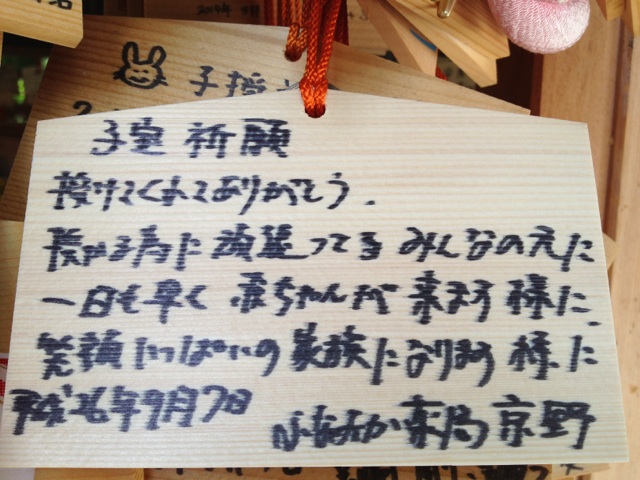 子授
子宝 祈願
授けてくれてありがとう.
授かる為に 頑張ってる みんなの元に
一日も早く 赤ちゃんが 来ます 様に.
笑顔いっぱいの 家族になります 様に
平成26年9月7日
京野